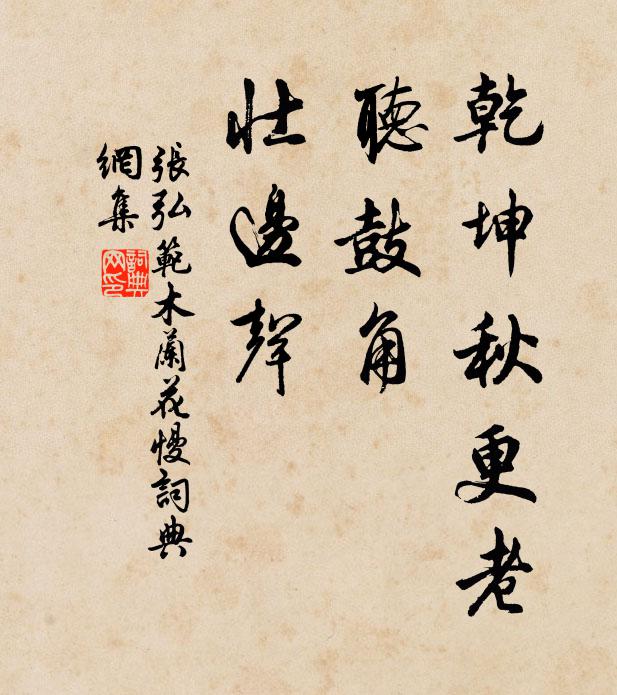 乾坤秋更老
聽鼓角
壯邊聲
張弘範木蘭花慢詞典
網集
詞典
网印